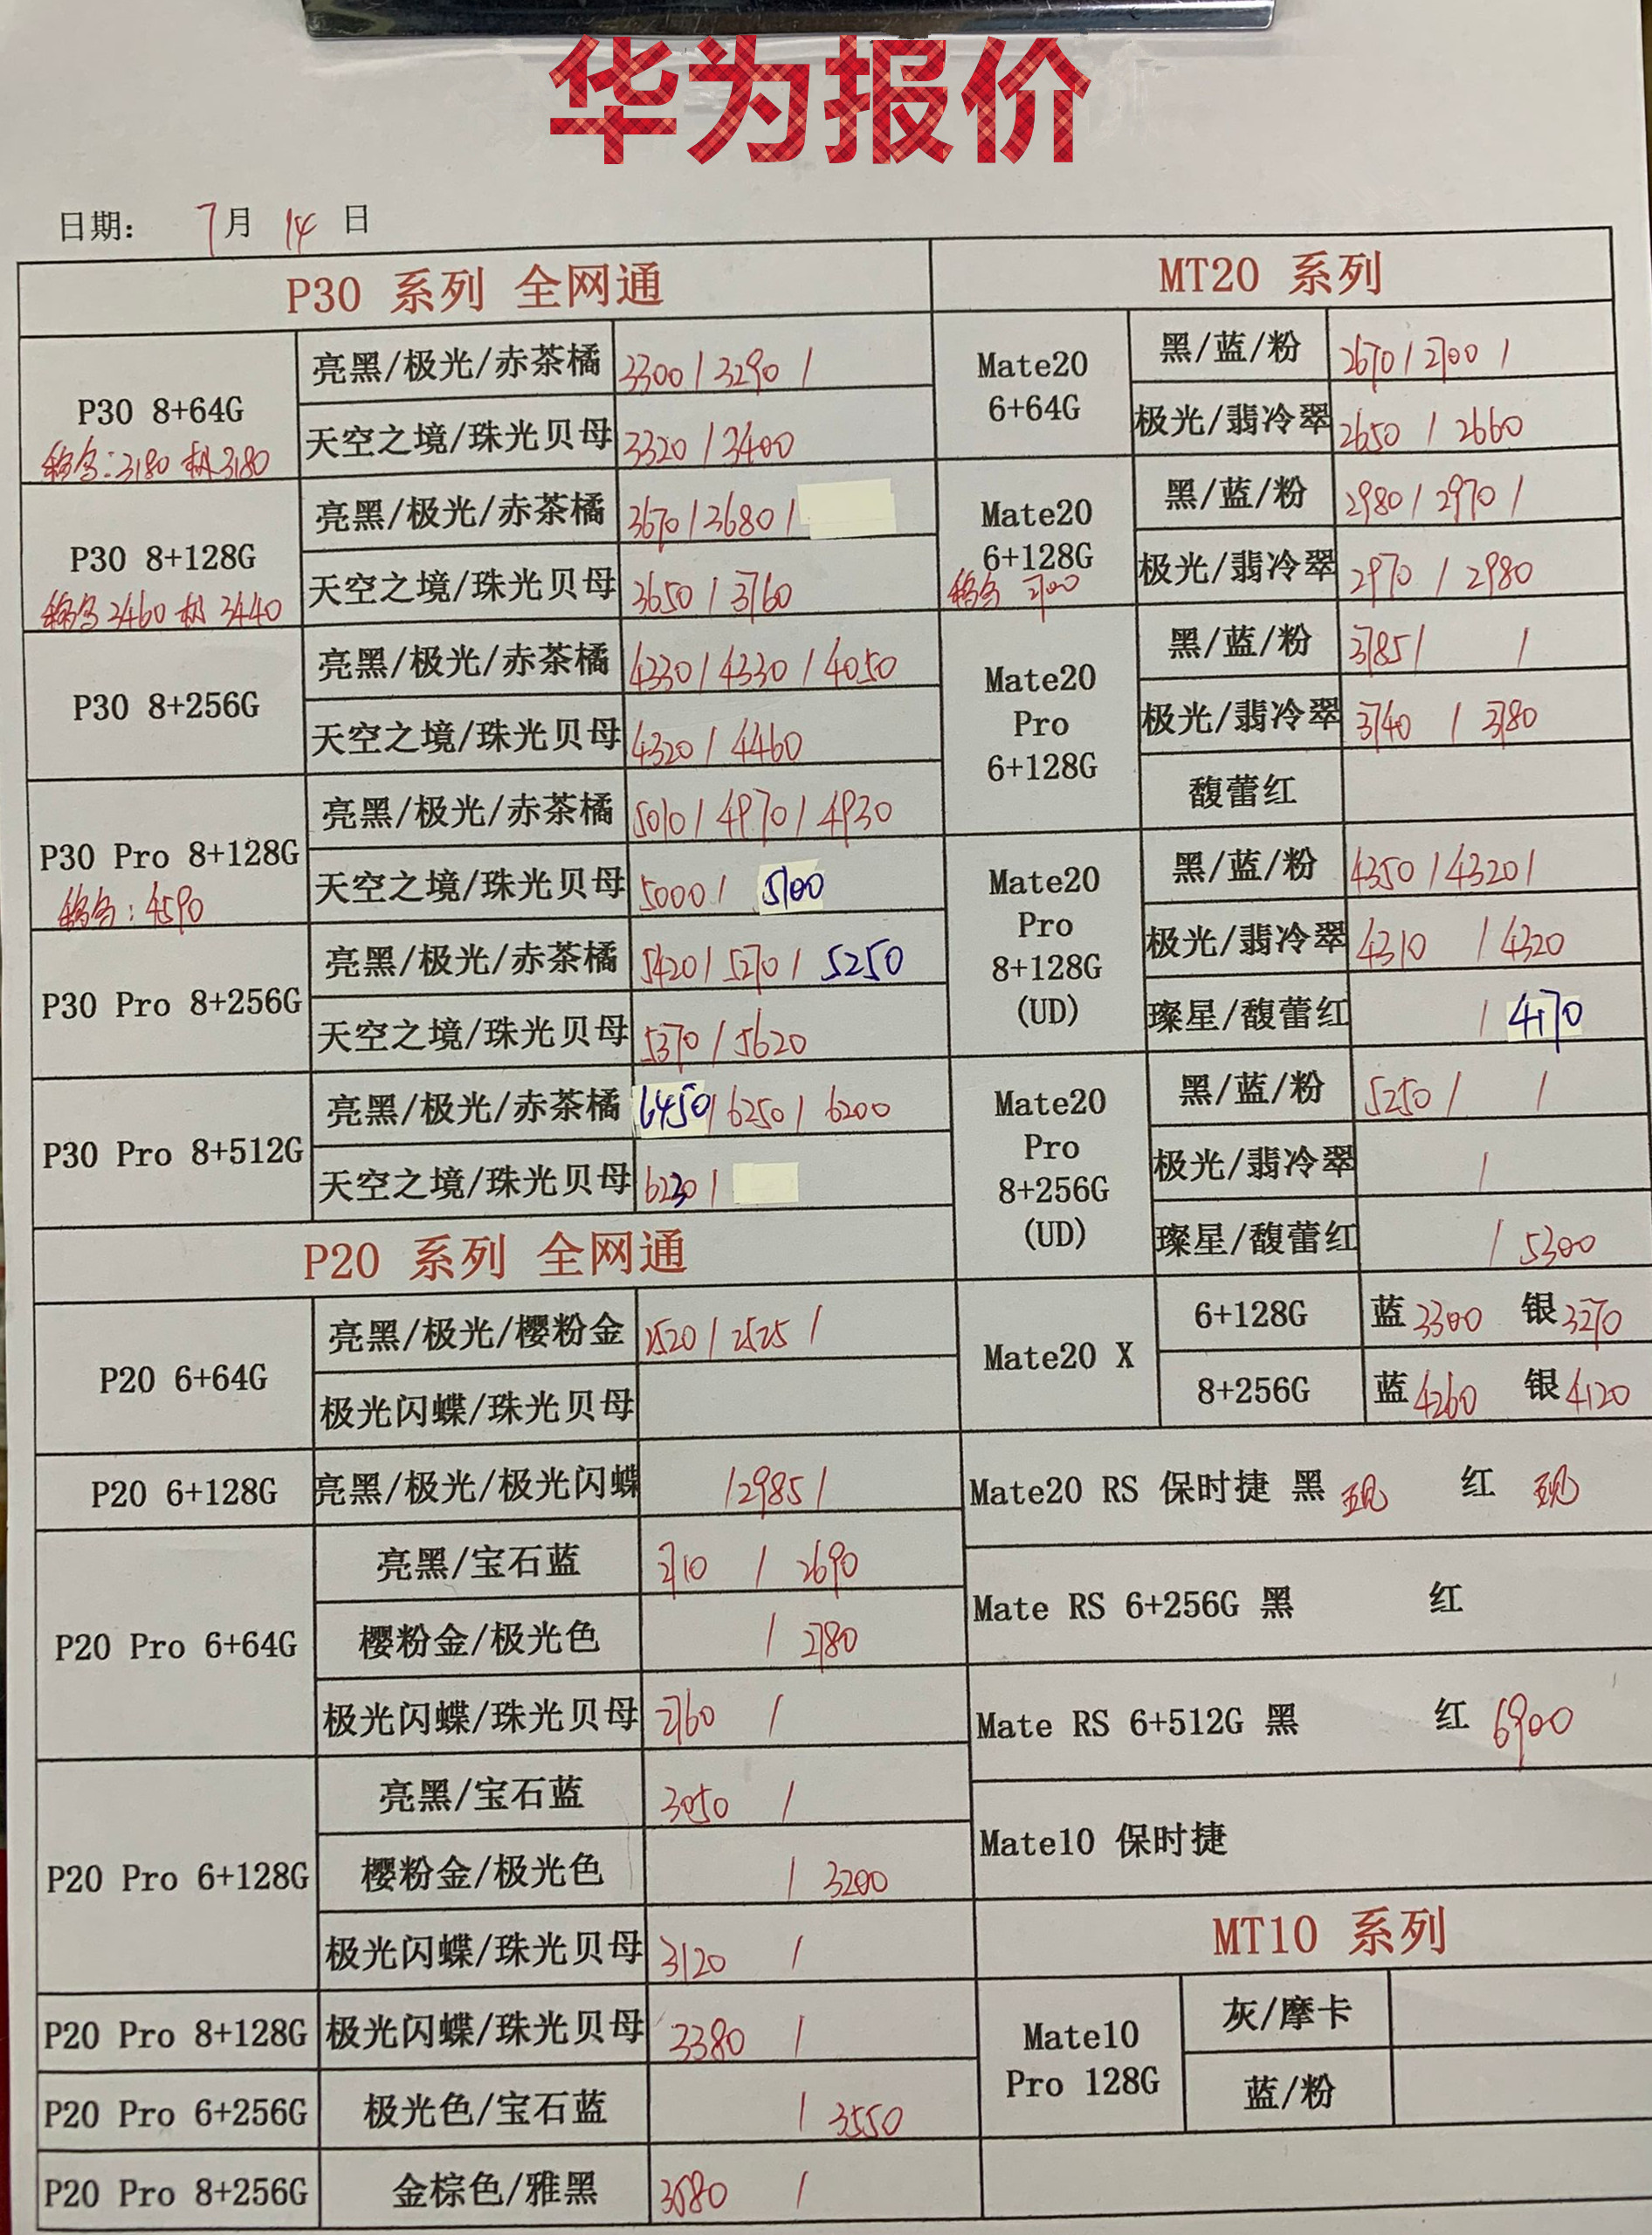 华为报价
日期： 7月 14 日
P30 系列 全网通
P30 8+64G
移动:3180 机3180
亮黑/极光/赤茶橘 3300 / 3290 /
天空之境/珠光贝母 3320 / 3400
P30 8+128G
移动 3460 机 3440
亮黑/极光/赤茶橘 3670 / 3680 /
天空之境/珠光贝母 3650 / 3760
P30 8+256G
亮黑/极光/赤茶橘 4330 / 4330 / 4050
天空之境/珠光贝母 4320 / 4460
P30 Pro 8+128G
移动: 4590
亮黑/极光/赤茶橘 5010 / 4970 / 4930
天空之境/珠光贝母 5000 / 5100
P30 Pro 8+256G
亮黑/极光/赤茶橘 5420 / 5270 / 5250
天空之境/珠光贝母 5370 / 5620
P30 Pro 8+512G
亮黑/极光/赤茶橘 6450 / 6250 / 6200
天空之境/珠光贝母 6230 /
P20 系列 全网通
P20 6+64G
亮黑/极光/樱粉金 2520 / 2525 /
极光闪蝶/珠光贝母
P20 6+128G
亮黑/极光/极光闪蝶 / 2985 /
P20 Pro 6+64G
亮黑/宝石蓝 2710 / 2690
樱粉金/极光色 / 2780
极光闪蝶/珠光贝母 2760 /
P20 Pro 6+128G
亮黑/宝石蓝 3050 /
樱粉金/极光色 / 3200
极光闪蝶/珠光贝母 3120 /
P20 Pro 8+128G
极光闪蝶/珠光贝母 3380 /
P20 Pro 6+256G
极光色/宝石蓝 / 3550
P20 Pro 8+256G
金棕色/雅黑 /
MT20 系列
Mate20
6+64G
黑/蓝/粉 2670 / 2700 /
极光/翡冷翠 2650 / 2660
Mate20
6+128G
移动 2700
黑/蓝/粉 2980 / 2970 /
极光/翡冷翠 2970 / 2980
Mate20
Pro
6+128G
黑/蓝/粉 3785 / /
极光/翡冷翠 3740 / 3780
馥蕾红
Mate20
Pro
8+128G
(UD)
黑/蓝/粉 4350 / 4320 /
极光/翡冷翠 4310 / 4320
璨星/馥蕾红 / 4170
Mate20
Pro
8+256G
(UD)
黑/蓝/粉 5250 / /
极光/翡冷翠 /
璨星/馥蕾红 / 5300
Mate20 X
6+128G 蓝 3300 银 3270
8+256G 蓝 4260 银 4120
Mate20 RS 保时捷 黑 现 红 现
Mate RS 6+256G 黑 红
Mate RS 6+512G 黑 红 6900
Mate10 保时捷
MT10 系列
Mate10
Pro 128G
灰/摩卡
蓝/粉